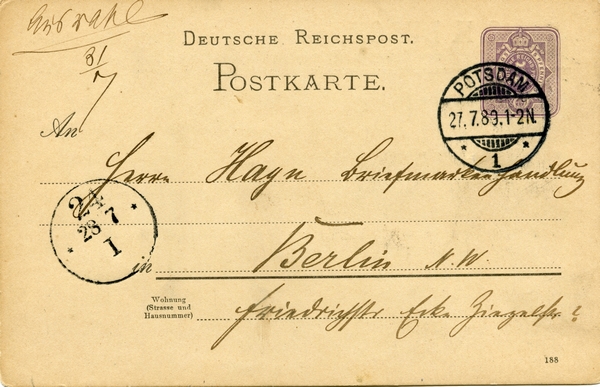 Auswahl
31/7
DEUTSCHE REICHSPOST.
POSTKARTE.
POTSDAM
27.7.89.1-2N.
* 1 *
An
Herrn Hayn Briefmarkenhandlung
24
28 7
* I *
in Berlin N.W.
Wohnung
(Strasse und
Hausnummer)
Friedrichstr Ecke Ziegelstr
188